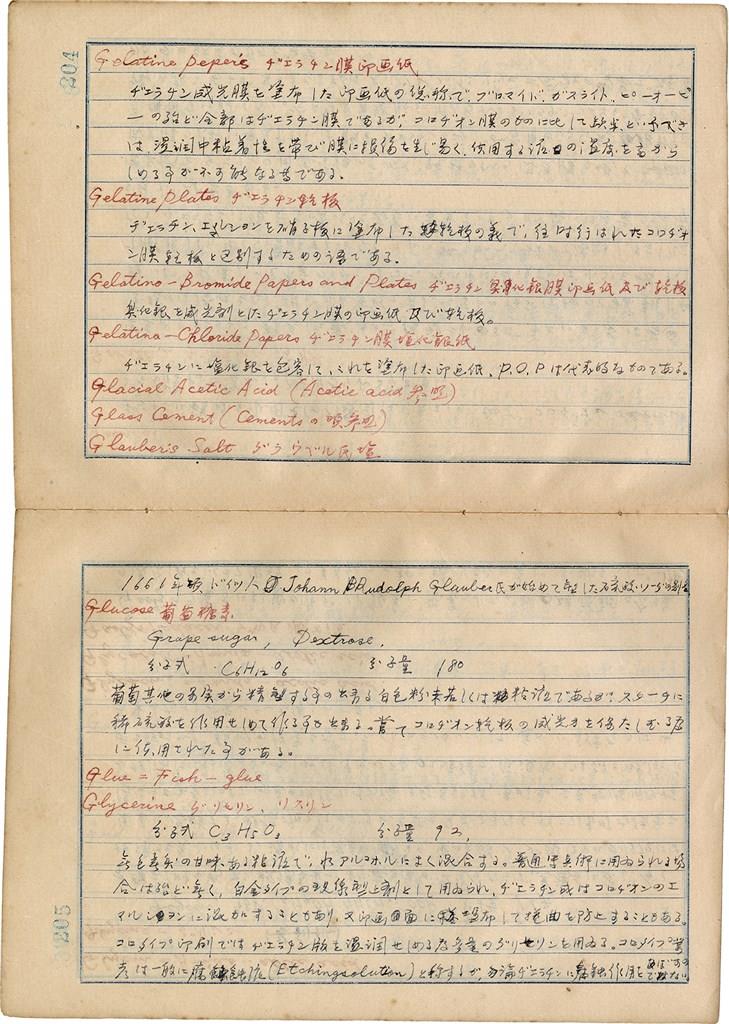 204
Gelatine Paper's ヂエラチン膜印画紙
ヂエラチン感光膜を塗布した印画紙の総称で、ブロマイド、ガスライト、ピーオーピ
ーの殆ど全部はヂエラチン膜であるが、コロヂオン膜のものに比して
は、湿潤中粘着性を帯び膜に損傷を生じ易く、使用する液の温度を高から
しめる事が不可能なる
である。
Gelatine Plates ヂエラチン乾板
ヂエラチン、エマルションを硝子板に塗布した乾板の義で、往時行はれたコロヂオ
ン膜乾板と区別するための語である。
Gelatino-Bromide Papers and Plates ヂエラチン臭化銀膜印画紙及び乾板
臭化銀を感光剤としたヂエラチン膜の印画紙及び乾板。
Gelatina-Chloride Papers ヂエラチン膜塩化銀紙
ヂエラチンに塩化銀を包含して、これを塗布した印画紙、P.O.Pは代表的なものである。
Glacial Acetic Acid (Acetic acid 参照)
Glass Cement (Cements の項参照)
Glauber's Salt グラウベル氏塩
1661年頃ドイツ人 Johann Rudolph Glauber氏が始めて製した硫酸ソーダの別名
Glucose 葡萄糖素
Grape sugar, Dextrose,
分子式 C6H12O6 分子量 180
葡萄其他の果実から精製する事の出来る白色粉末若しくは粘液であるが、スターチに
稀硫酸を作用せしめて作る事が出来る。嘗てコロヂオン乾板の感光力を保たしむる為
に使用された事がある。
Glue = Fish-glue
Glycerine グリセリン、リスリン
分子式 C3H5O3 分子量 92,
無色無臭の甘味ある粘液で、水アルコホルによく混合する。普通写真術に用ゐられる場
合は殆ど無く、白金タイプの現像型上剤として用ゐられ、ヂエラチン或はコロヂオンのエ
マルションに混加することもあり、又印画面に塗布して捲曲を防止することもある。
コロタイプ印刷ではヂエラチン版を湿潤せしめる為多量のグリセリンを用ゐる。コロタイプ業
者は一般に腐蝕液(Etchingsolution)と称するが勿論ヂエラチンに腐蝕作用を
205